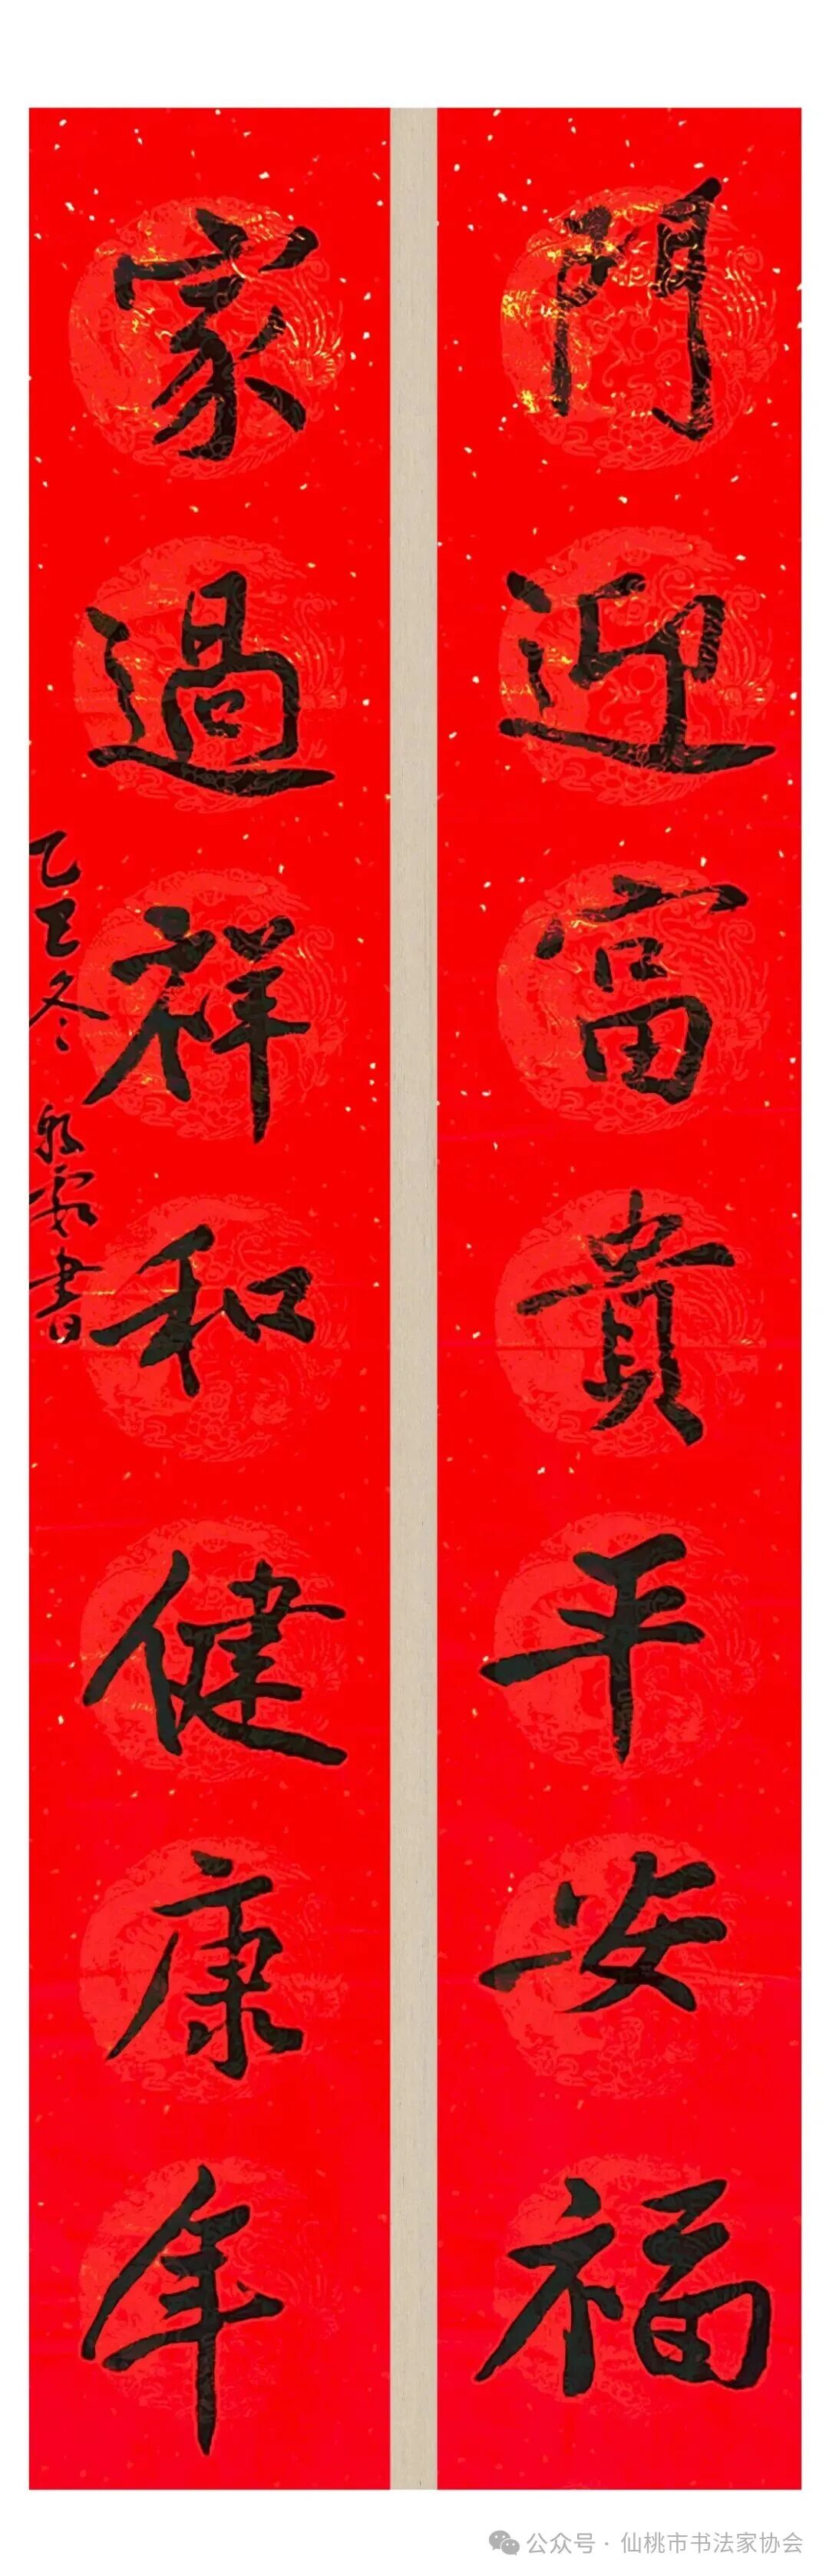 門迎富貴平安福
家過祥和健康年
乙巳冬
書
公众号·仙桃市书法家协会